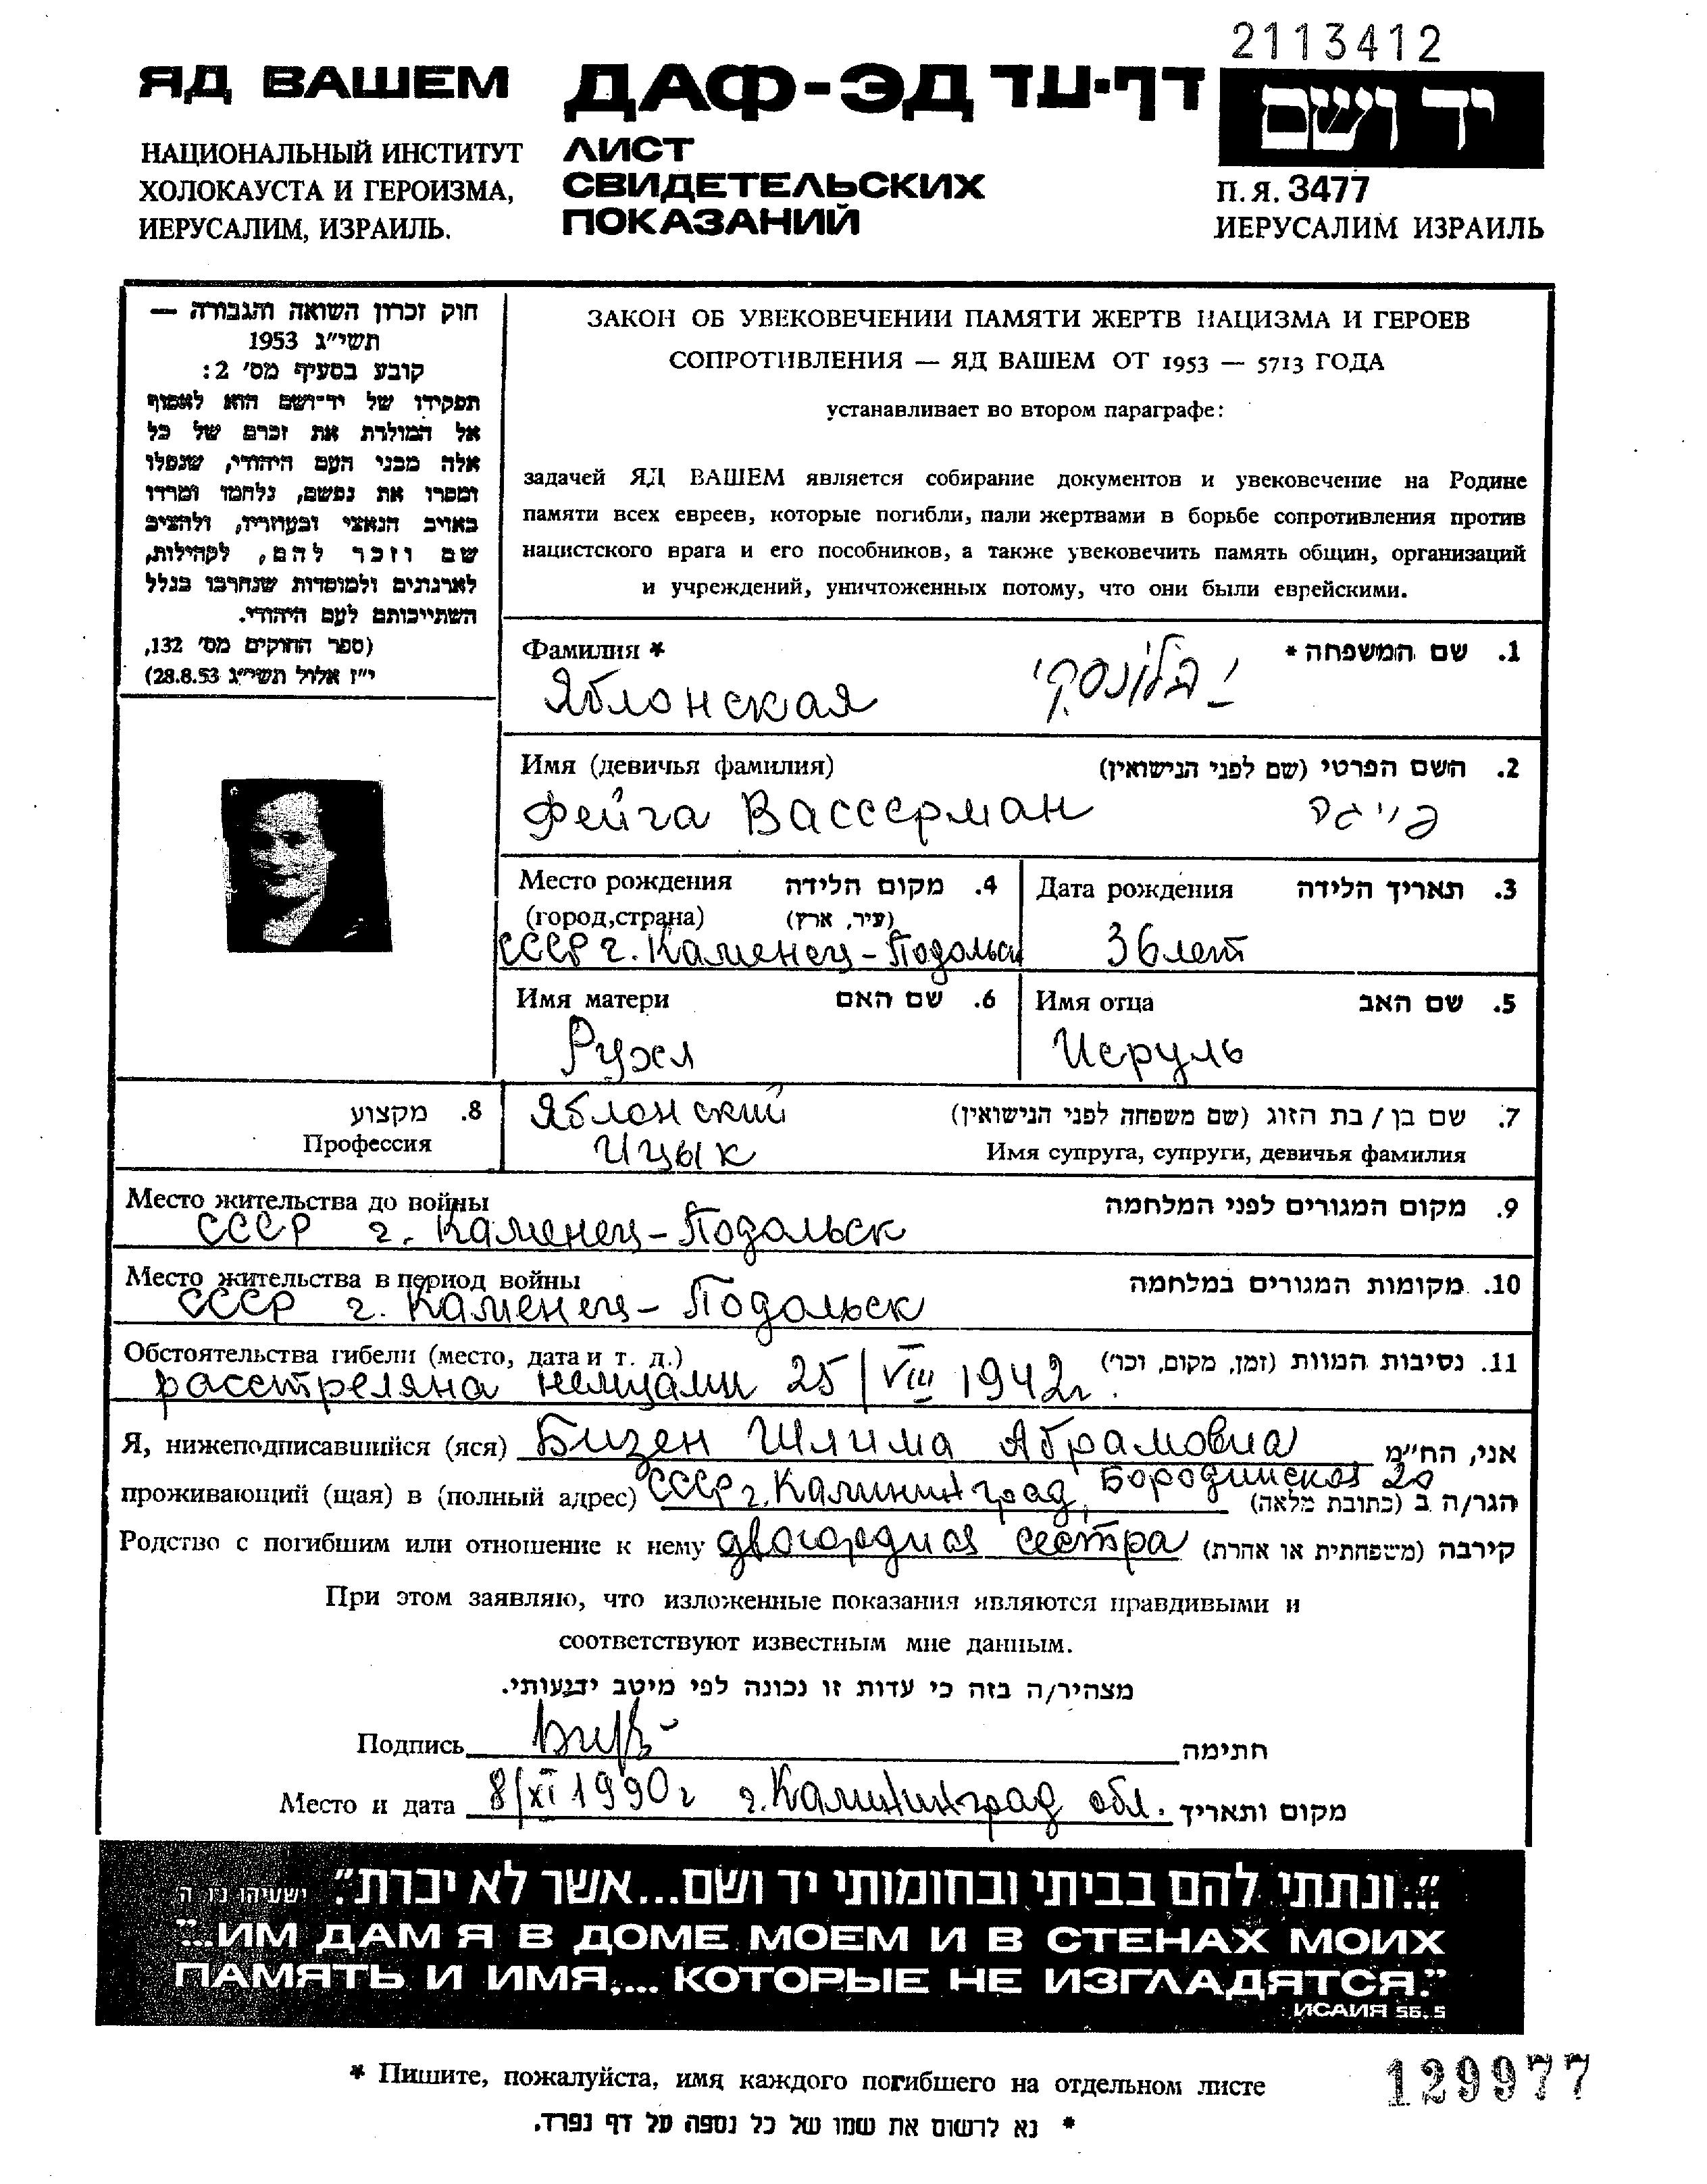 2113412
ЯД ВАШЕМ
ДАФ-ЭД דף-עד
יד ושם
НАЦИОНАЛЬНЫЙ ИНСТИТУТ
ХОЛОКАУСТА И ГЕРОИЗМА,
ИЕРУСАЛИМ, ИЗРАИЛЬ.
ЛИСТ
СВИДЕТЕЛЬСКИХ
ПОКАЗАНИЙ
П.Я. 3477
ИЕРУСАЛИМ ИЗРАИЛЬ
חוק זכרון השואה והגבורה —
תשי"ג 1953
קובע בסעיף מס' 2:
תפקידו של יד-ושם הוא לאסוף
אל המולדת את זכרם של כל
אלה מבני העם היהודי, שנפלו
ומסרו את נפשם, נלחמו ומרדו
באויב הנאצי ובעוזריו, ולהציב
שם וזכר להם, לקהילות,
לארגונים ולמוסדות שנחרבו בגלל
השתייכותם לעם היהודי.
(ספר החוקים מס' 132,
י"ז אלול תשי"ג 28.8.53)
ЗАКОН ОБ УВЕКОВЕЧЕНИИ ПАМЯТИ ЖЕРТВ НАЦИЗМА И ГЕРОЕВ
СОПРОТИВЛЕНИЯ — ЯД ВАШЕМ ОТ 1953 — 5713 ГОДА
устанавливает во втором параграфе:
задачей ЯД ВАШЕМ является собирание документов и увековечение на Родине
памяти всех евреев, которые погибли, пали жертвами в борьбе сопротивления против
нацистского врага и его пособников, а также увековечить память общин, организаций
и учреждений, уничтоженных потому, что они были еврейскими.
Фамилия * 1. שם המשפחה *
Яблонская יבלונסקי
Имя (девичья фамилия) 2. השם הפרטי (שם לפני הנישואין)
Фейга Вассерман פייגה
Место рождения 4. מקום הלידה
(город,страна) (עיר, ארץ)
СССР г. Каменец-Подольск
Дата рождения 3. תאריך הלידה
36 лет
Имя матери 6. שם האם
Рухл
Имя отца 5. שם האב
Исруль
8. מקצוע
Профессия
Яблонский 7. שם בן / בת הזוג (שם משפחה לפני הנישואין)
Ицык Имя супруга, супруги, девичья фамилия
Место жительства до войны 9. מקום המגורים לפני המלחמה
СССР г. Каменец-Подольск
Место жительства в период войны 10. מקומות המגורים במלחמה
СССР г. Каменец-Подольск
Обстоятельства гибели (место, дата и т. д.) 11. נסיבות המוות (זמן, מקום, וכו')
расстреляна немцами 25/VIII 1942г.
Я, нижеподписавшийся (яся) Бизен Шлима Абрамовна אני, הח"מ
проживающий (щая) в (полный адрес) СССР г. Калининград, Бородинская 20 הגר/ה ב (כתובת מלאה)
Родство с погибшим или отношение к нему двоюродная сестра קירבה (משפחתית או אחרת)
При этом заявляю, что изложенные показания являются правдивыми и
соответствуют известным мне данным.
מצהיר/ה בזה כי עדות זו נכונה לפי מיטב ידיעותי.
Подпись חתימה
Место и дата 8/XI 1990г г. Калининград обл. מקום ותאריך
"...ונתתי להם בביתי ובחומותי יד ושם...אשר לא יכרת". ישעיהו נו, ה
"...ИМ ДАМ Я В ДОМЕ МОЕМ И В СТЕНАХ МОИХ
ПАМЯТЬ И ИМЯ,... КОТОРЫЕ НЕ ИЗГЛАДЯТСЯ."
ИСАИЯ 56, 5
* Пишите, пожалуйста, имя каждого погибшего на отдельном листе
129977
* נא לרשום את שמו של כל נספה על דף נפרד.